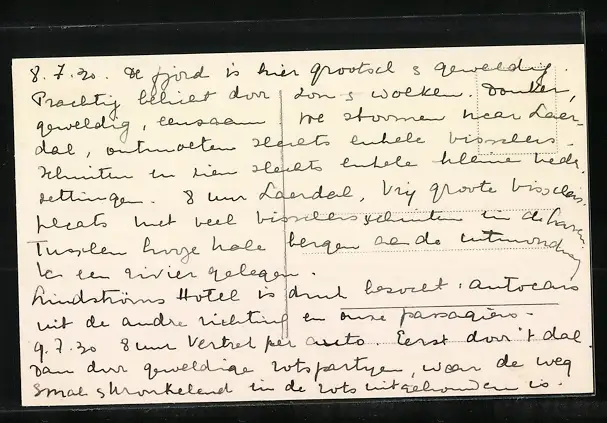 8.7.30. De fjord is hier grootsch & geweldig.
Prachtig belicht door zon & wolken. Donker,
geweldig, eenzaam. We stoomen naar Laer-
dal, ontmoeten slechts enkele visschers-
schuiten en zien slechts enkele kleine neder-
zettingen. 8 uur Laerdal, vrij groote visschers-
plaats met veel visschersschuiten in de haven.
Tusschen hooge kale bergen aan de uitmonding
van een rivier gelegen.
Lindströms Hotel is druk bezocht: autocars
uit de andre richting en onze passagiers.
9.7.30 8 uur Vertrek per auto. Eerst door 't dal.
Dan door geweldige rotspartyen, waar de weg
smal & kronkelend in de rots uitgehouwen is.